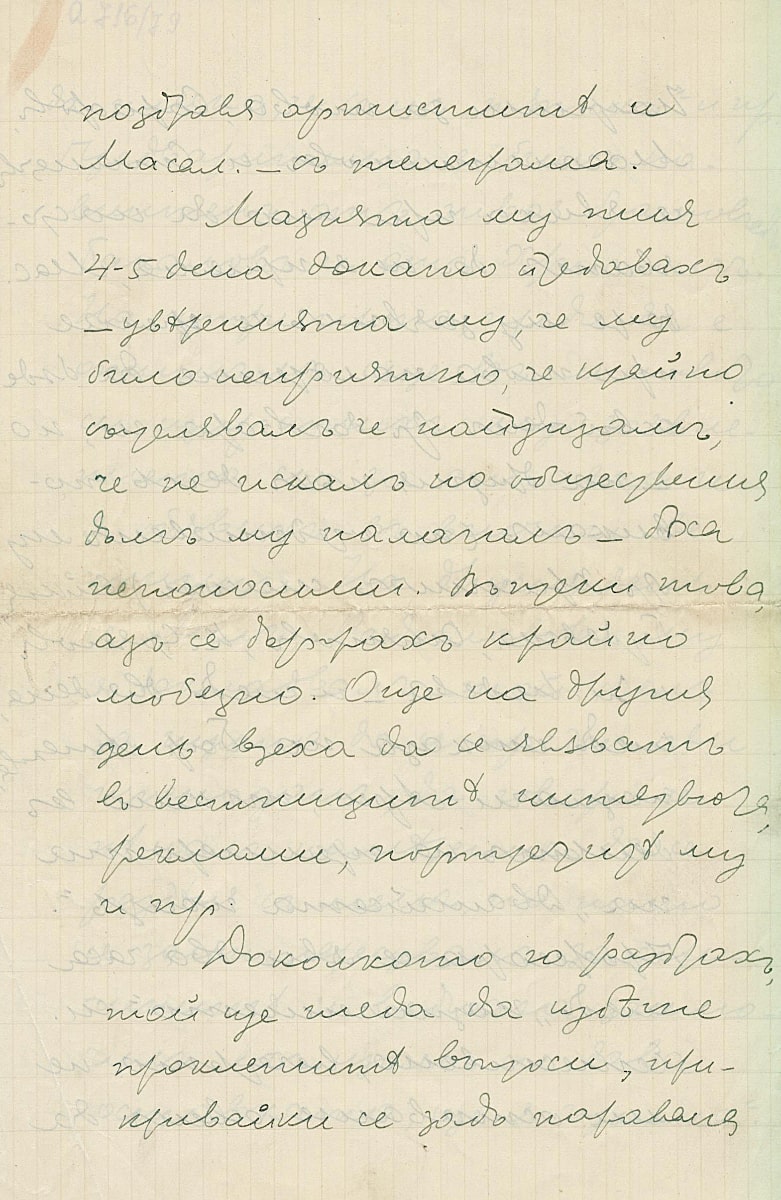 поздравя артиститѣ и
Масал. – съ телеграма.
Мазнята му тия
4-5 дена докато пѫтувахъ
– увѣренията му, че му
било неприятно, че крайно
съжелявалъ че
че не искалъ но обществения
дългъ му налагалъ – бѣха
непоносими. Въпреки това,
азъ се държахъ крайно
любезно. Още на другия
день взеха да се явяватъ
въ вестницитѣ интервюта,
реклами, портретитѣ му
и пр.
Доколкото го разбрахъ,
той ще гледа да избѣгне
проклетитѣ въпроси, при-
кривайки се задъ паравана